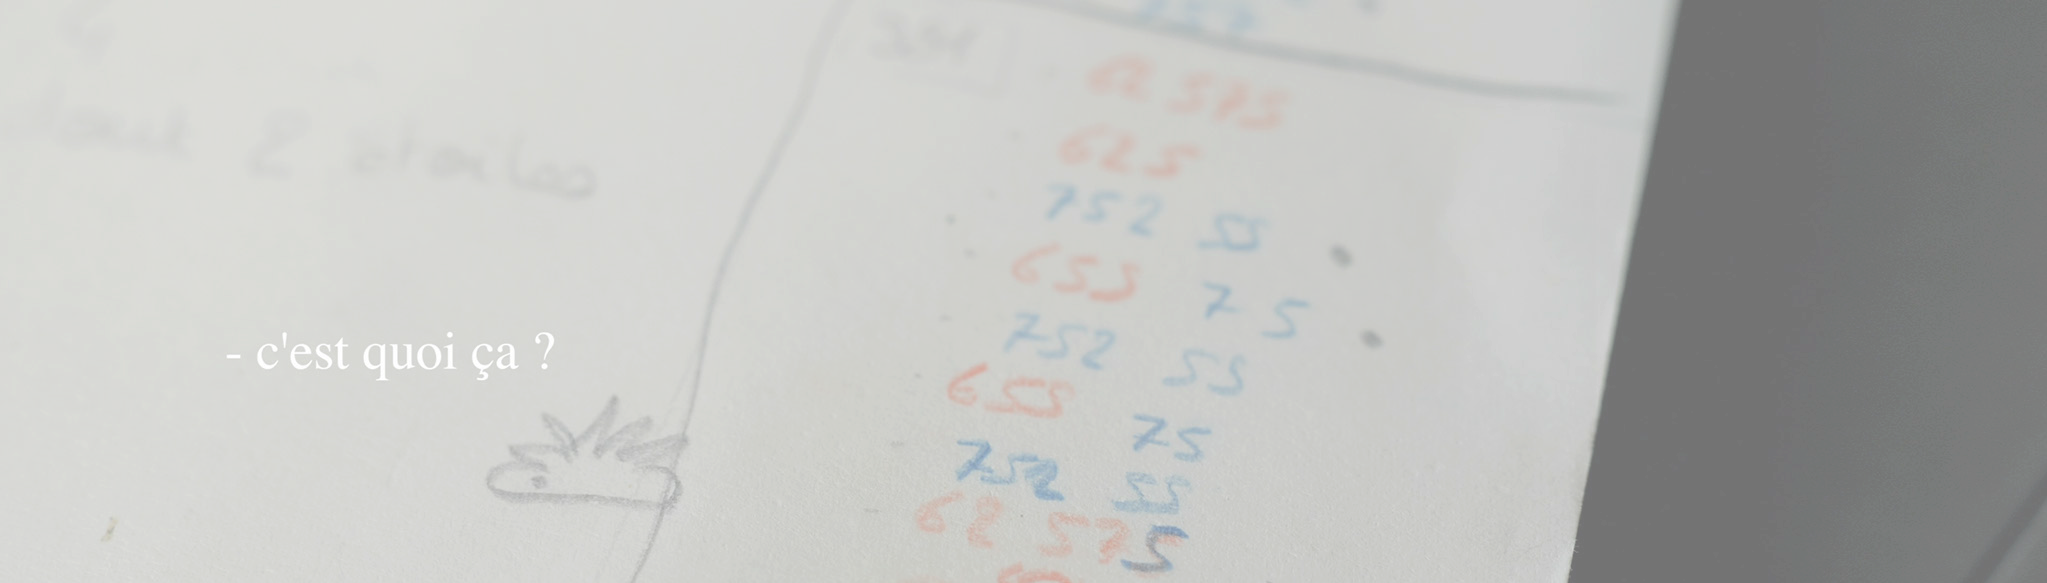 dont 2 étoiles
62 575
625
752 55
655 75
752 55
655 75
752 55
62 575
- c'est quoi ça ?